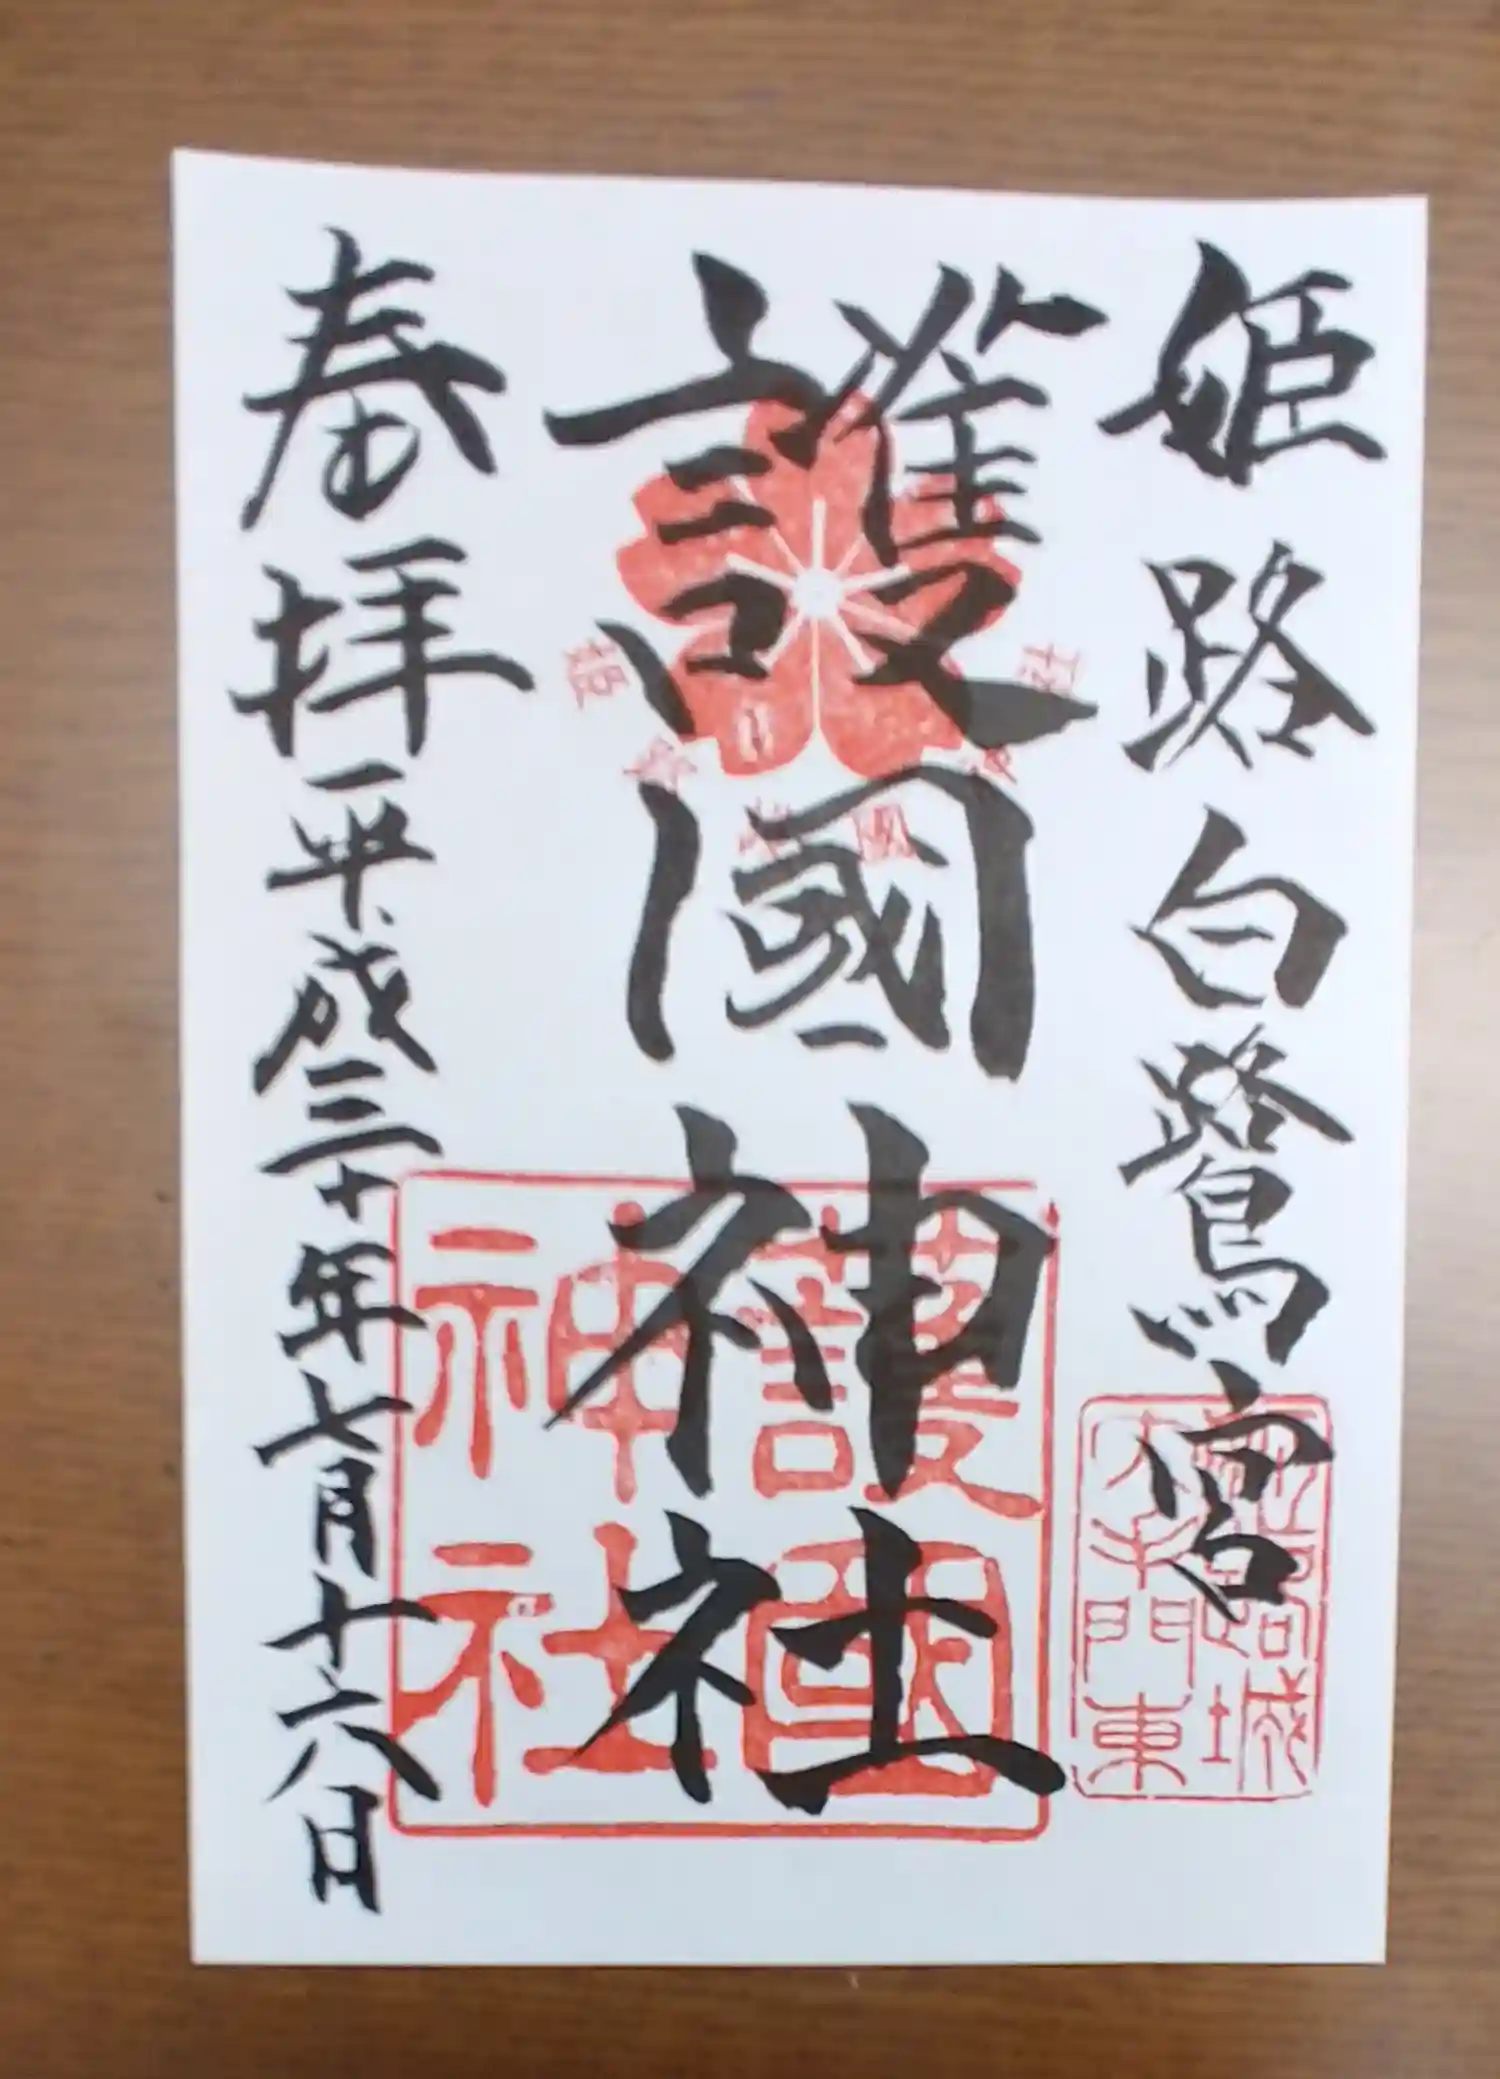 姫路白鷺宮
護國神社
奉拝
平成三十年七月十六日
姫路城
大手門東
護國
神社